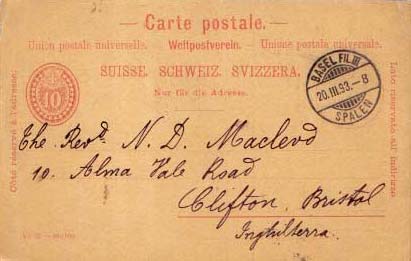 Carte postale.
Union postale universelle. Weltpostverein. Unione postale universale.
SUISSE. SCHWEIZ. SVIZZERA.
Nur für die Adresse.
Côté réservé à l'adresse.
Lato riservato all' indirizzo
10
BASEL FIL. III
20.III.93.-8
SPALEN
The Revd. N. D. Macleod
10. Alma Vale Road
Clifton, Bristol
Inghilterra.